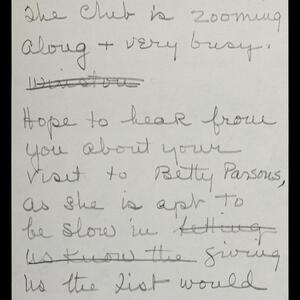 The Club is zooming
along + very busy.
Winston
Hope to hear from
you about your
visit to Betty Parsons,
as she is apt to
be slow in letting
us know the giving
us the list would